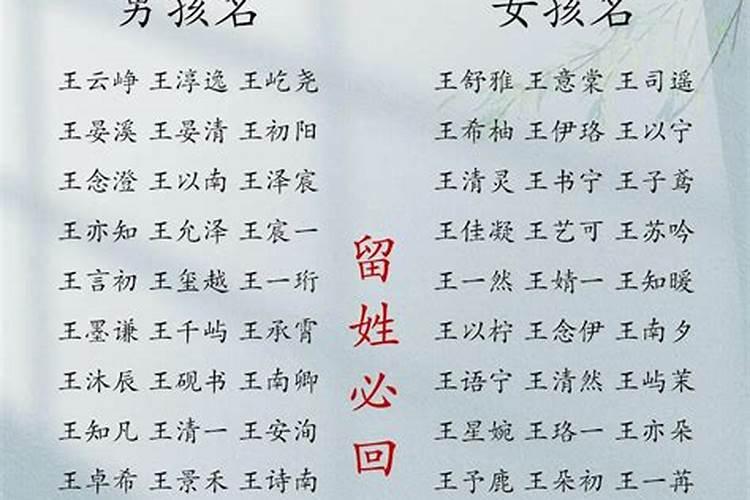 男孩名
王云峥 王淳逸 王屹尧
王晏溪 王晏清 王初阳
王念澄 王以南 王泽宸
王亦知 王允泽 王宸一
王言初 王玺越 王一珩
王墨谦 王千屿 王承霄
王沐辰 王砚书 王南卿
王知凡 王清一 王安洵
王卓希 王景禾 王诗南
留姓必回
女孩名
王舒雅 王意棠 王司遥
王希柚 王伊珞 王以宁
王清灵 王书宁 王子鸢
王佳凝 王艺可 王苏吟
王一然 王婧一 王知暖
王以柠 王念伊 王南夕
王语宁 王清然 王屿茉
王星婉 王珞一 王亦朵
王予鹿 王朵初 王一苒